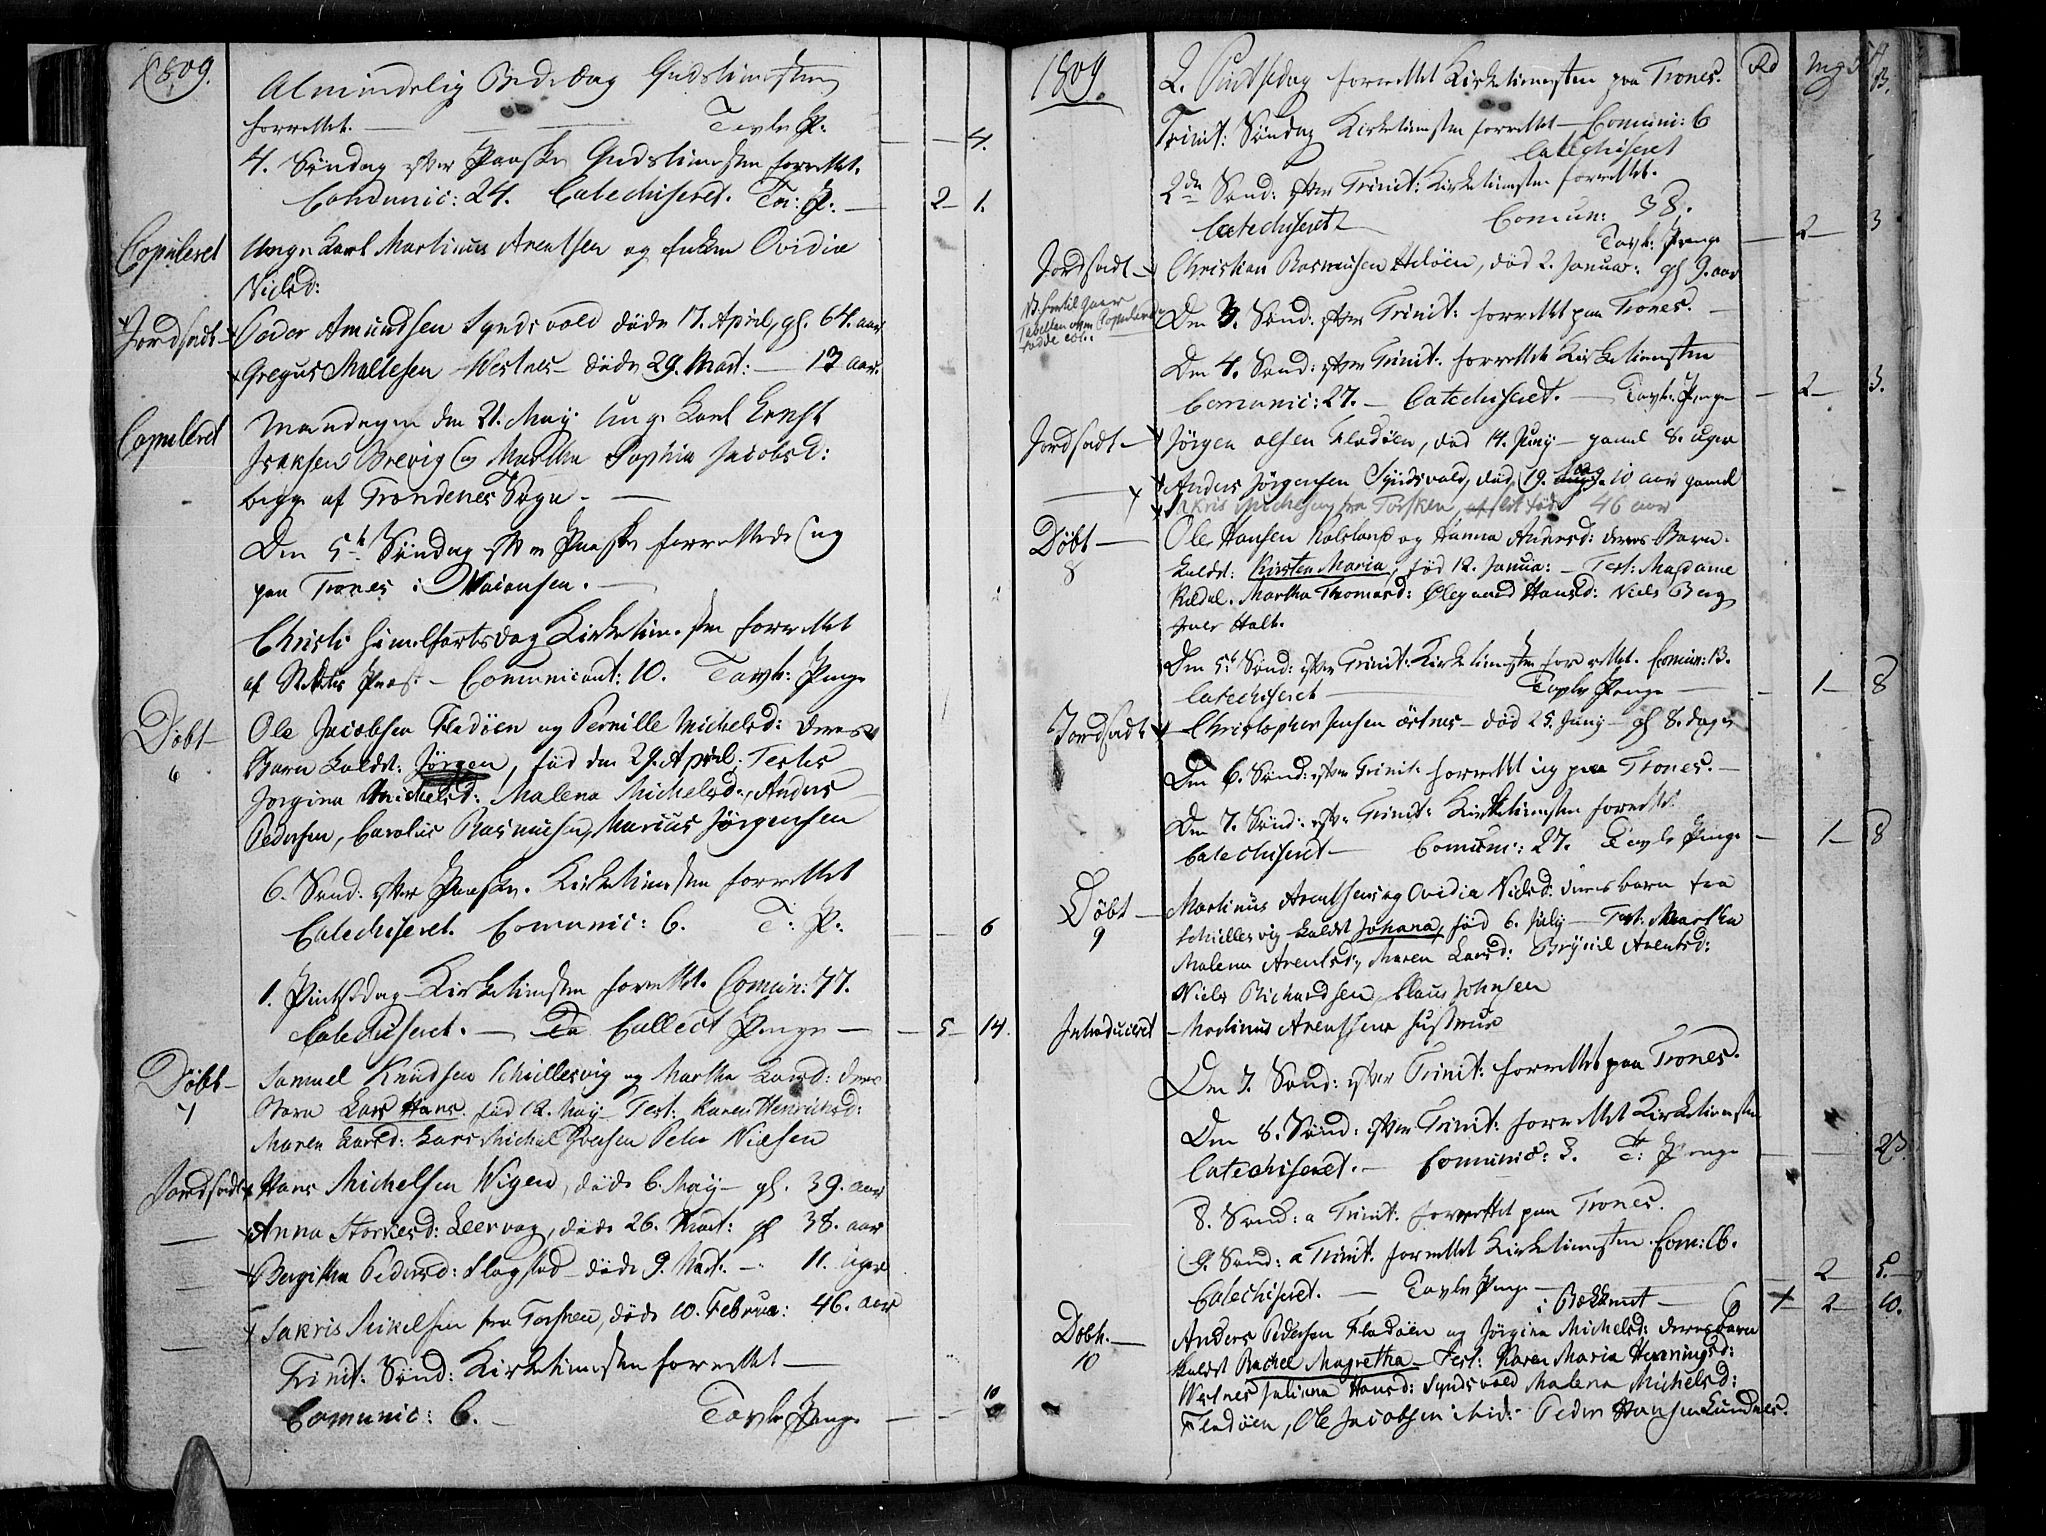 1809.
Almindelig Bededag Gudstienesten
forrettet. — Tavle P: — — 4.
4. Søndag efter Paaske Gudstienesten forrettet.
Communic: 24. Catechiseret. Ta: P: — 2 — 1.
Copuleret Unge Karl Martinus Arentsen og Enken Ovidia
Nielsd:
Jordfæstet Peder Amundsen Lyndsvold døde 17. April, gl. 64. aar
Gregus Mallesen Westnes — døde 29. Mart: — 13 aar.
Copuleret Mandagen den 21. May Unge Karl Ernst
Isaksen Brevig og Martha Sophia Jacobsd:
begge af Trondenes Sogn —
Den 5te Søndag efter Paaske forrettede jeg
paa Trones i
Christi Himelfartsdag Kirketienesten forrettet
af Præst — Comunicant: 10. Tavle: Penge
Døbt — Ole Jacobsen Fladøen og Pernille Michelsd: deres
6 Barn kaldt: Jørgen, fød den 29. April: Testes
Jørgina Michelsd: Malena Michelsd:, Anders
Pedersen, Carolus Rasmusen, Marius Jørgensen
6. Sønd: efter Paaske. Kirketienesten forrettet
Catechiseret. Comunic: 6. T: P: — — 6
1. Pintsedag — Kirketienesten forrettet. Comun: 77.
Catechiseret. — Ta Collect Penge — — 5 — 14.
Døbt — Samuel Knudsen Schiellesvig og Martha Larsd: deres
7 Barn Lars Hans. fød 12. May — Test: Karen Henrichsd:
Maren Larsd: Lars Michel Iversen Peter Nielsen
Jordfæstet Hans Michelsen Wigen, døde 6. May — gl. 39. aar
— Anna Storkesd: Leervog, døde 26. Mart: gl 38. aar
— Bergitha Pedersd: Flagstad — døde 9. Mart. — 11. uger
— Sakris Mikelsen fra Torsken, døde 10. Februa: 46. aar
Trinit: Sønd: Kirketienesten forrettet —
Comunic: 6. — Tavle Penge — — 10
1809. 2. Pintsedag forrettet Kirketienesten paa Trones. Rd mg B.
Trinit: Søndag Kirketienesten forrettet — Comuni: 6
Catechiseret
2den Sønd: efter Trinit: Kirketienesten forrettet.
Catechiseret — Comun: 38.
Tavle: Penge — 2 — 3
Jordfæstet — Christian Rasmusen Heløen, død 2. Januar: gl 9. aar
NB. hertil gaar
Tabellen over
fødde etc:
Den 3. Sønd: efter Trinit: forrettet paa Trones. —
Den 4. Sønd: efter Trinit: forrettet Kirketienesten
Comunic: 27. — Catechiseret. — Tavle: Penge — 2 — 3.
Jordfæstet — Jørgen Olsen Fladøen, død 14. Juny — gaml 8. uger
— Anders Jørgensen Lyndsvold, død 19. 10 aar gaml
Sakris Michelsen fra Torsken, 46 aar
Døbt — Ole Hansen Rolsland og Hanna Andersd: deres Barn
8 kaldt: Kirsten Maria, fød 12. Janua: — Test: Madame
Rædel. Martha Thomasd: Olegaard Hansd: Niels Berg
Iver Holt.
Den 5te Sønd: efter Trinit: Kirketienesten forrettet. Comun: 13.
Catechiseret — Tavle Penge — — 1 — 8
Jordfæstet — Christopher Jensen Østnes — død 25. Juny — gl 8. dage
Den 6. Sønd: efter Trinit: forrettet jeg paa Trones. —
Den 7. Sønd: efter Trinit: Kirketienesten forrettet
Catechiseret — Comunic: 27. Tavle Penge — 1 — 8
Døbt — Martinus Arentsen og Ovidia Nielsd: deres barn fra
9 Schiellesvig kaldt Johana, fød 6. July — Test: Martha
Malena Arentsd:, Maren Larsd: Brynil Arentsd:
Niels Richardsen, Claus Johnsen
Introduceret — Martinus Arentsens hustrue
Den 7. Sønd: efter Trinit: forrettet paa Trones.
Den 8. Sønd: efter Trinit: forrettet Kirketienesten
Catechiseret. — Comunic: 3. T: Penge — — 23.
8. Sønd: a Trinit: forrettet paa Trones.
9. Sønd: a Trinit: forrettet Kirketienesten. Com: 16.
Catechiseret. — Tavle Penge — — 2 — 5.
i Bekkenet — 2 — 10.
Døbt. — Anders Pedersen Fladøen og Jørgina Michelsd: deres barn
10 kaldt Rachel Magretha — Test: Karen Maria Henningsd:
Westnes Juliana Hansd: Lyndsvold Malena Michelsd:
Fladøen, Ole Jacobsen ibid: Peder Hansen Lundnes.